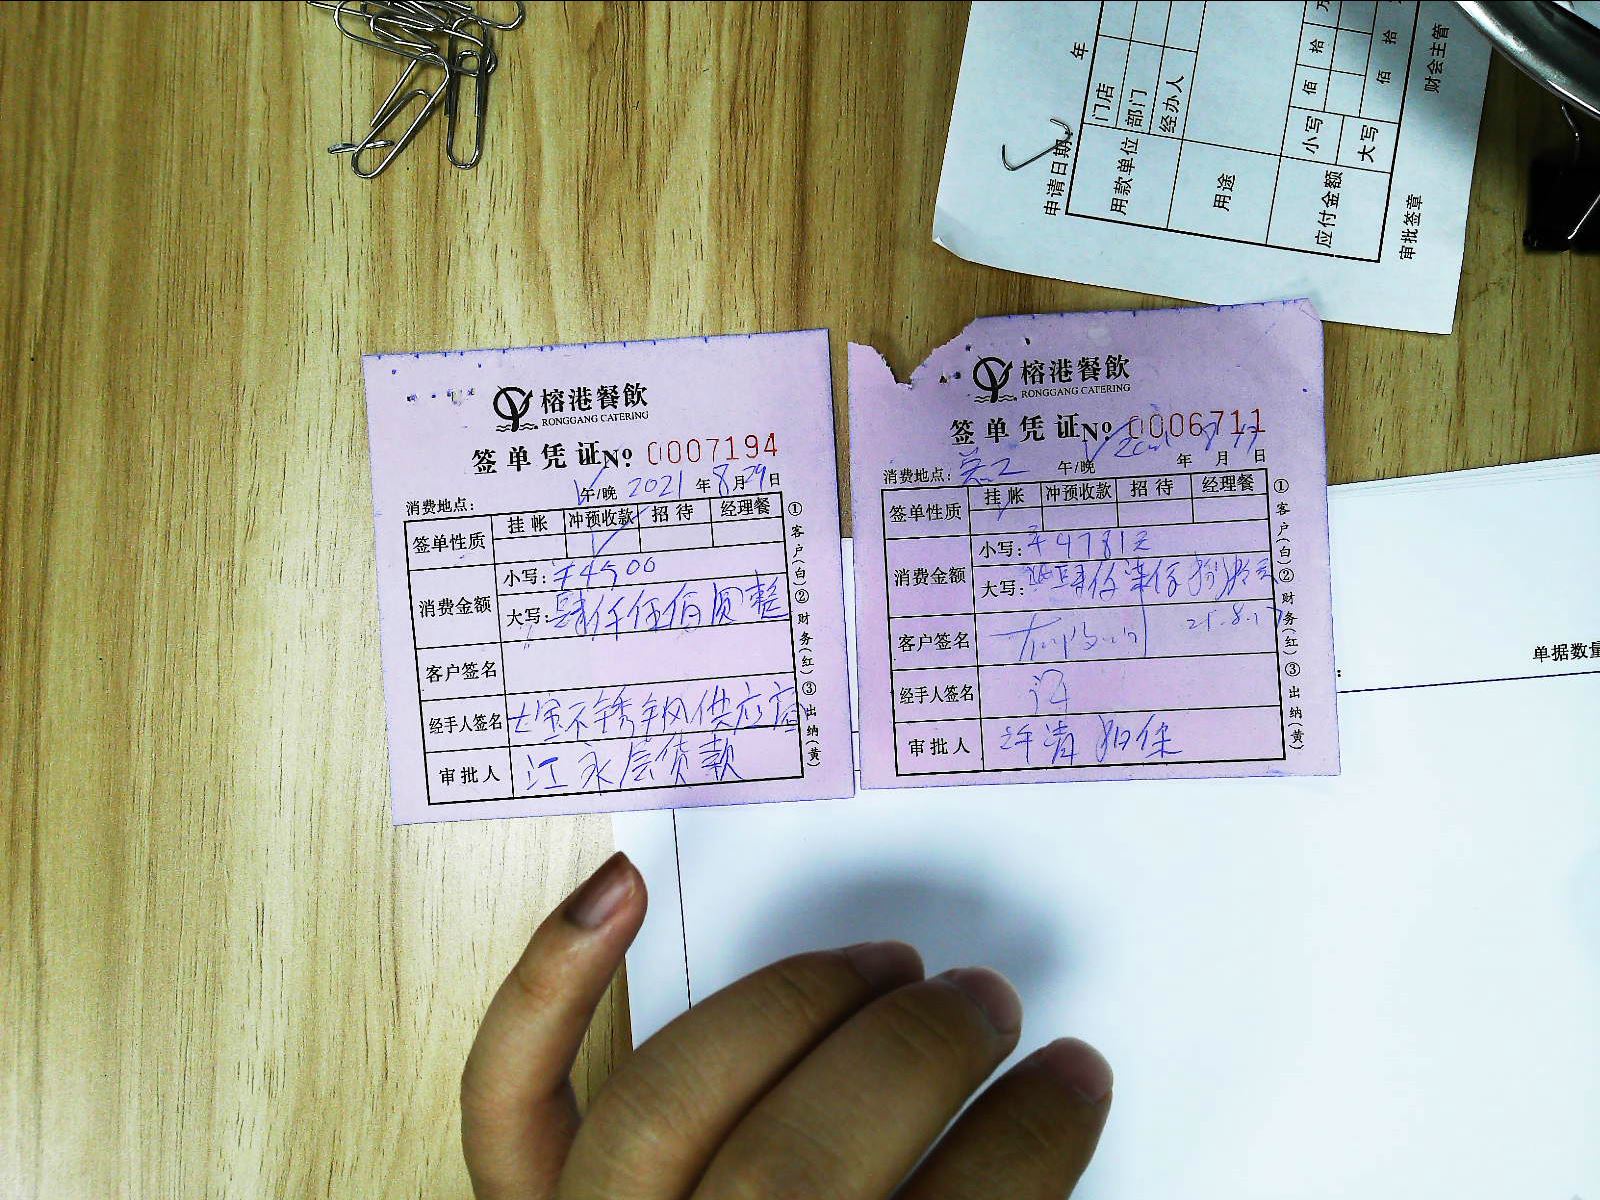 榕港餐飲
RONGGANG CATERING
签单凭证 No. 0007194
消费地点: 午/晚 2021 年 8 月 29 日
签单性质 挂帐 冲预收款 招待 经理餐
消费金额 小写: ¥4500
大写: 肆仟伍佰圆整
客户签名
经手人签名 不锈钢供应商
审批人 江永层货款
①客户(白)②财务(红)③出纳(黄)
榕港餐飲
RONGGANG CATERING
签单凭证 No. 0006711
消费地点: 午/晚 年 月 日
签单性质 挂帐 冲预收款 招待 经理餐
消费金额 小写: ¥4781元
大写: 肆仟柒佰捌拾
客户签名 21.8.17
经手人签名
审批人 许清
①客户(白)②财务(红)③出纳(黄)
申请日期: 年
用款单位 门店
部门
经办人
用途
应付金额 小写 佰 拾 万
大写 佰 拾
审批签章 财会主管
单据数量